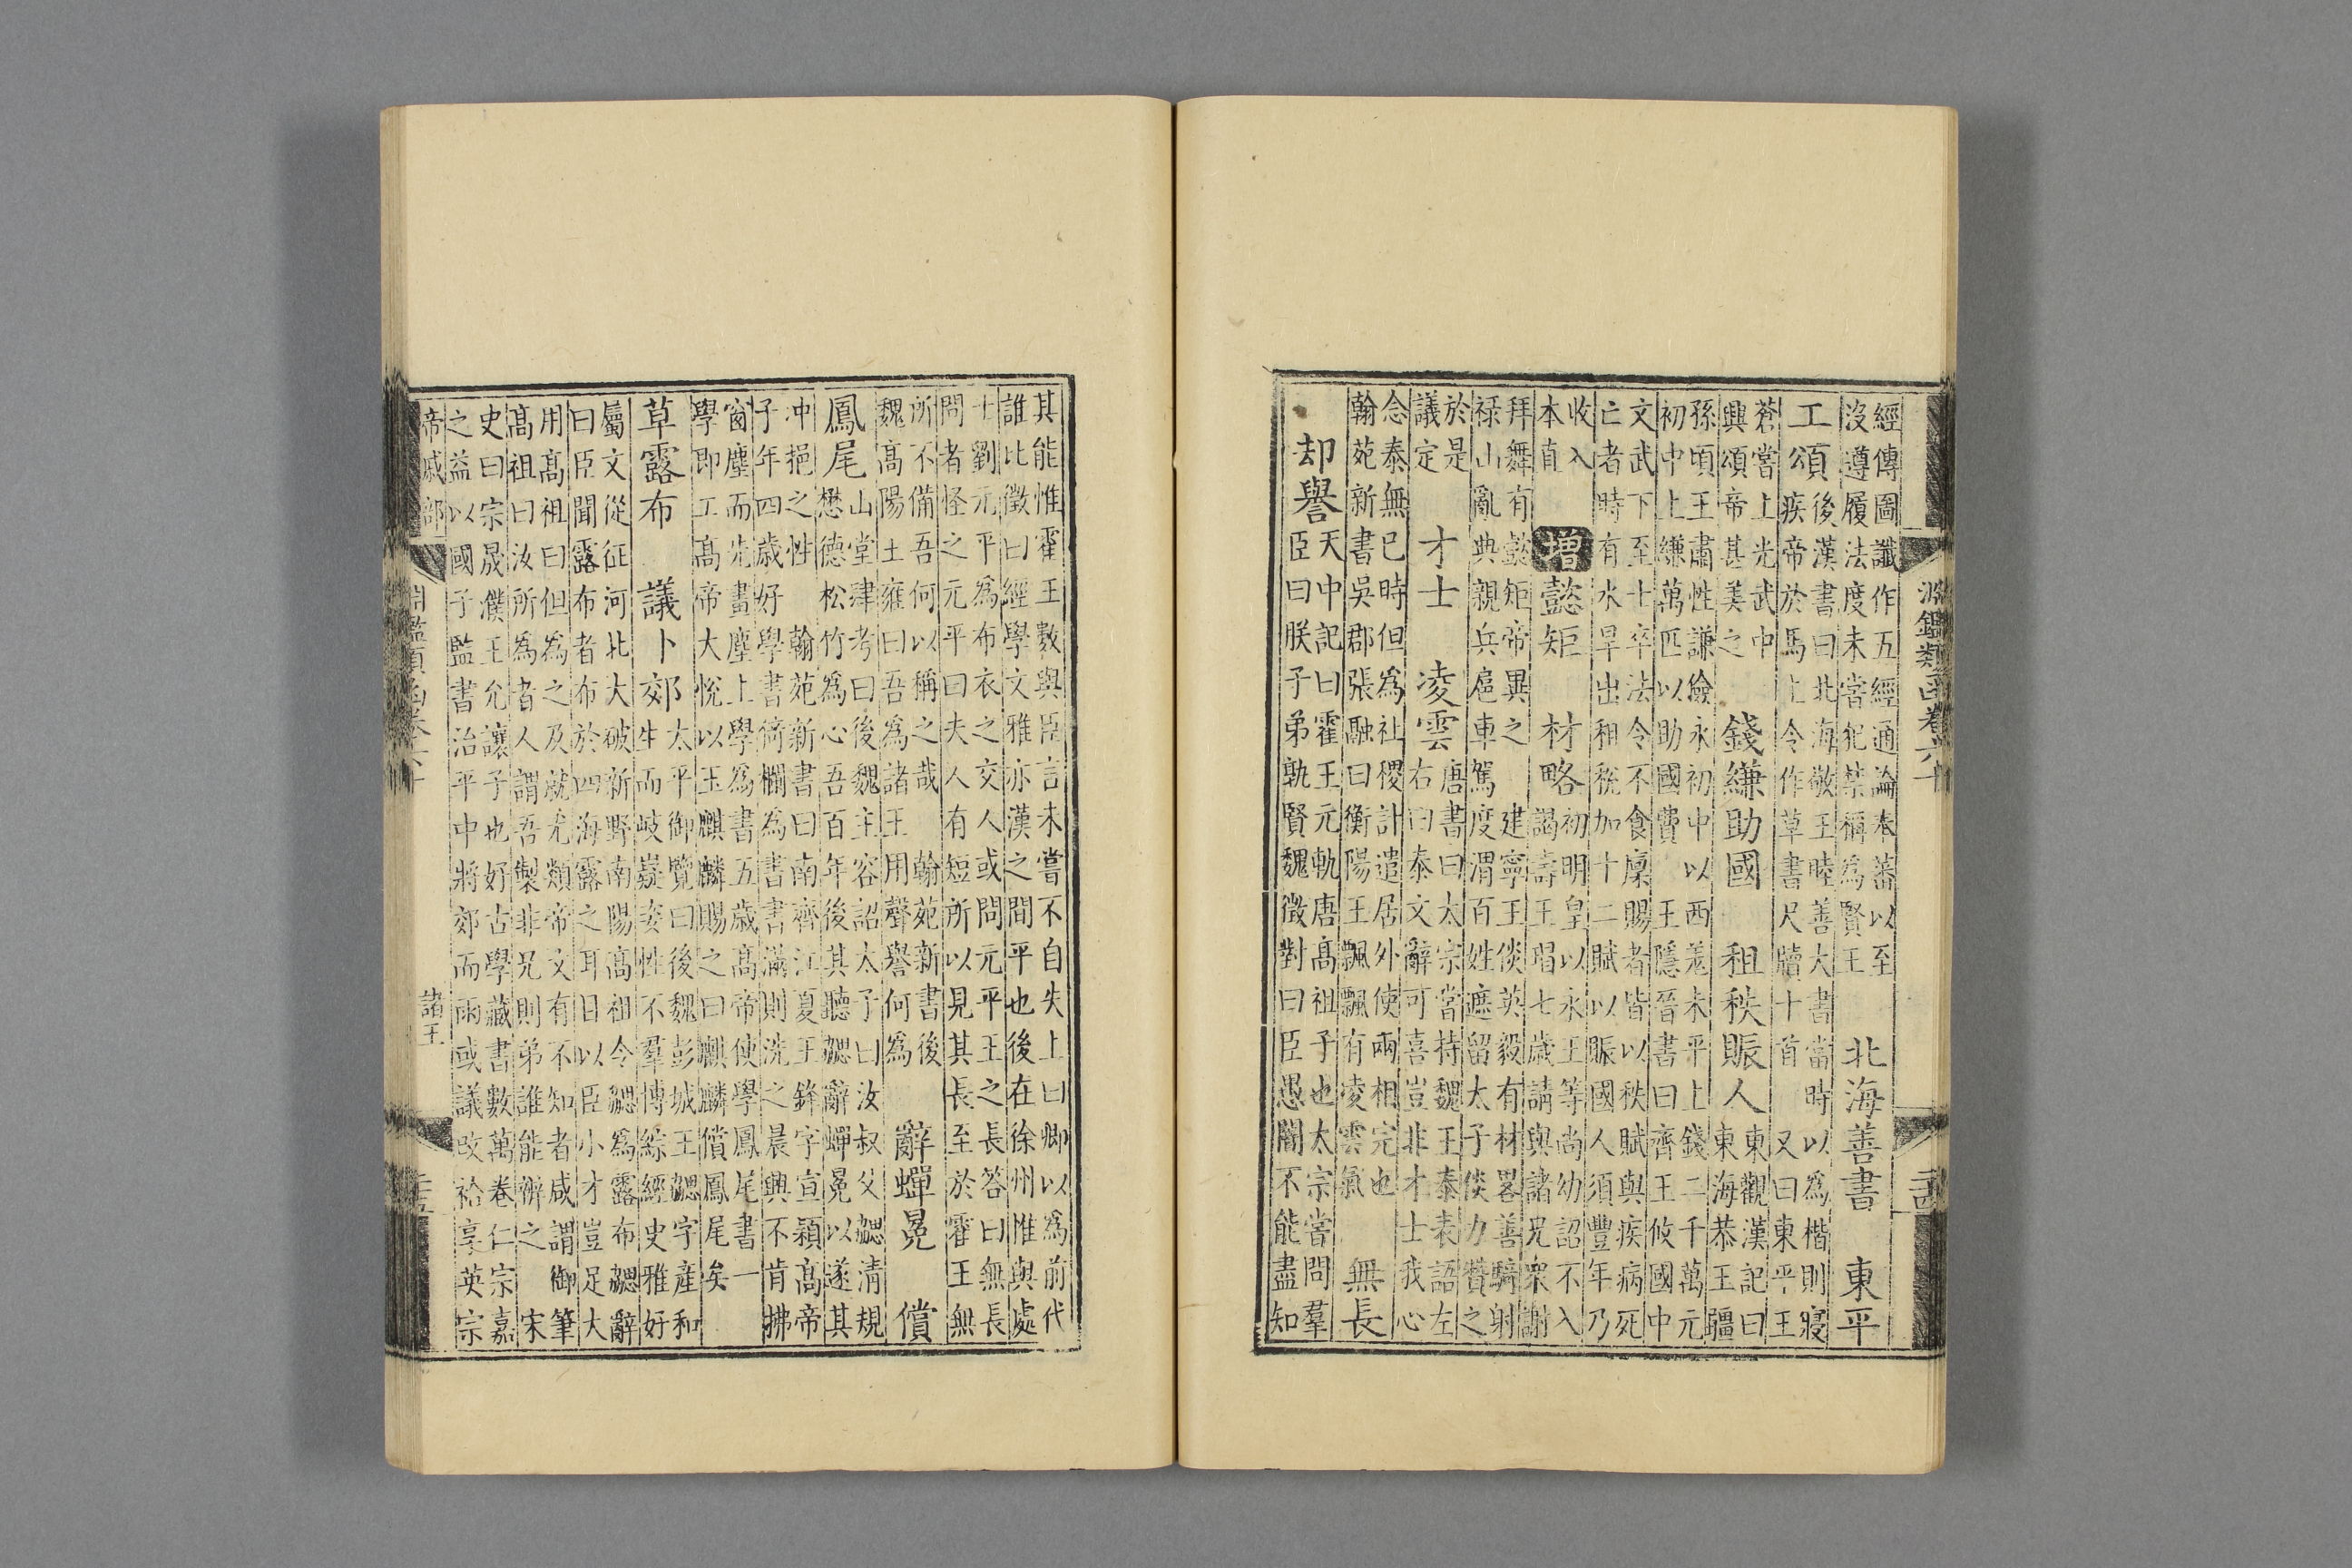 淵鑑類函卷六十
經傳圖讖作五經通論奉藩以至
沒遵履法度未嘗犯禁稱為賢王
北海善書 東平
工頌
後漢書曰北海敬王睦善大書當時以為楷則寢
疾帝於馬上令作草書尺牘十首 又曰東平王
蒼嘗上光武中
興頌帝甚美之
錢縑助國 租秩賑人
東觀漢記曰
東海恭王彊
孫頃王肅性謙儉永初中以西羌未平上錢二千萬元
初中上縑萬匹以助國費 王隱晉書曰齊王攸國中
文武下至士卒法令不食廩賜者皆以秩賦與疾病死
亡者時有水旱出租稅加十二賦以賑國人須豐年乃
收入
本直
增懿矩 材略
初明皇以永王等尚幼詔不入
謁壽王瑁七歲請與諸兄衆謝
拜舞有懿矩帝異之 建寧王倓英毅有材畧善騎射
祿山亂典親兵扈車駕度渭百姓遮留太子倓力贊之
於是
議定
才士 凌雲
唐書曰太宗當持魏王泰表語左
右曰泰文辭可喜豈非才士我心
念泰無已時但為社稷計遣居外使兩相完也
翰苑新書吳郡張融曰衡陽王飄飄有凌雲氣
無長
却譽
天中記曰霍王元軌唐高祖子也太宗嘗問羣
臣曰朕子弟孰賢魏徵對曰臣愚闇不能盡知
其能惟霍王數與臣言未嘗不自失上曰卿以為前代
誰比徵曰經學文雅亦漢之間平也後在徐州惟與處
士劉元平為布衣之交人或問元平王之長答曰無長
問者怪之元平曰夫人有短所以見其長至於霍王無
所不備吾何以稱之哉 翰苑新書後
魏高陽王雍曰吾為諸王用聲譽何為
辭蟬冕 償
鳳尾
山堂肆考曰後魏主容詔太子曰汝叔父勰清規
懋德松竹為心吾百年後其聽勰辭蟬冕以遂其
冲挹之性 翰苑新書曰南齊江夏王鋒字宣穎高帝
子年四歲好學書倚欄為書書滿則洗之晨興不肯拂
窗塵而先畫塵上學為書五歲高帝使學鳳尾書一
學即工高帝大悅以玉麒麟賜之曰麒麟償鳳尾矣
草露布 議卜郊
太平御覽曰後魏彭城王勰字產和
生而岐嶷姿性不羣博綜經史雅好
屬文從征河北大破新野南陽高祖令勰為露布勰辭
曰臣聞露布者布於四海露之耳目以臣小才豈足大
用高祖曰但為之及就尤類帝文有不知者咸謂御筆
高祖曰汝所為者人謂吾製非兄則弟誰能辨之 宋
史曰宗晟濮王允讓子也好古學藏書數萬卷仁宗嘉
之益以國子監書治平中將郊而雨或議改袷享英宗
帝戚部 諸王